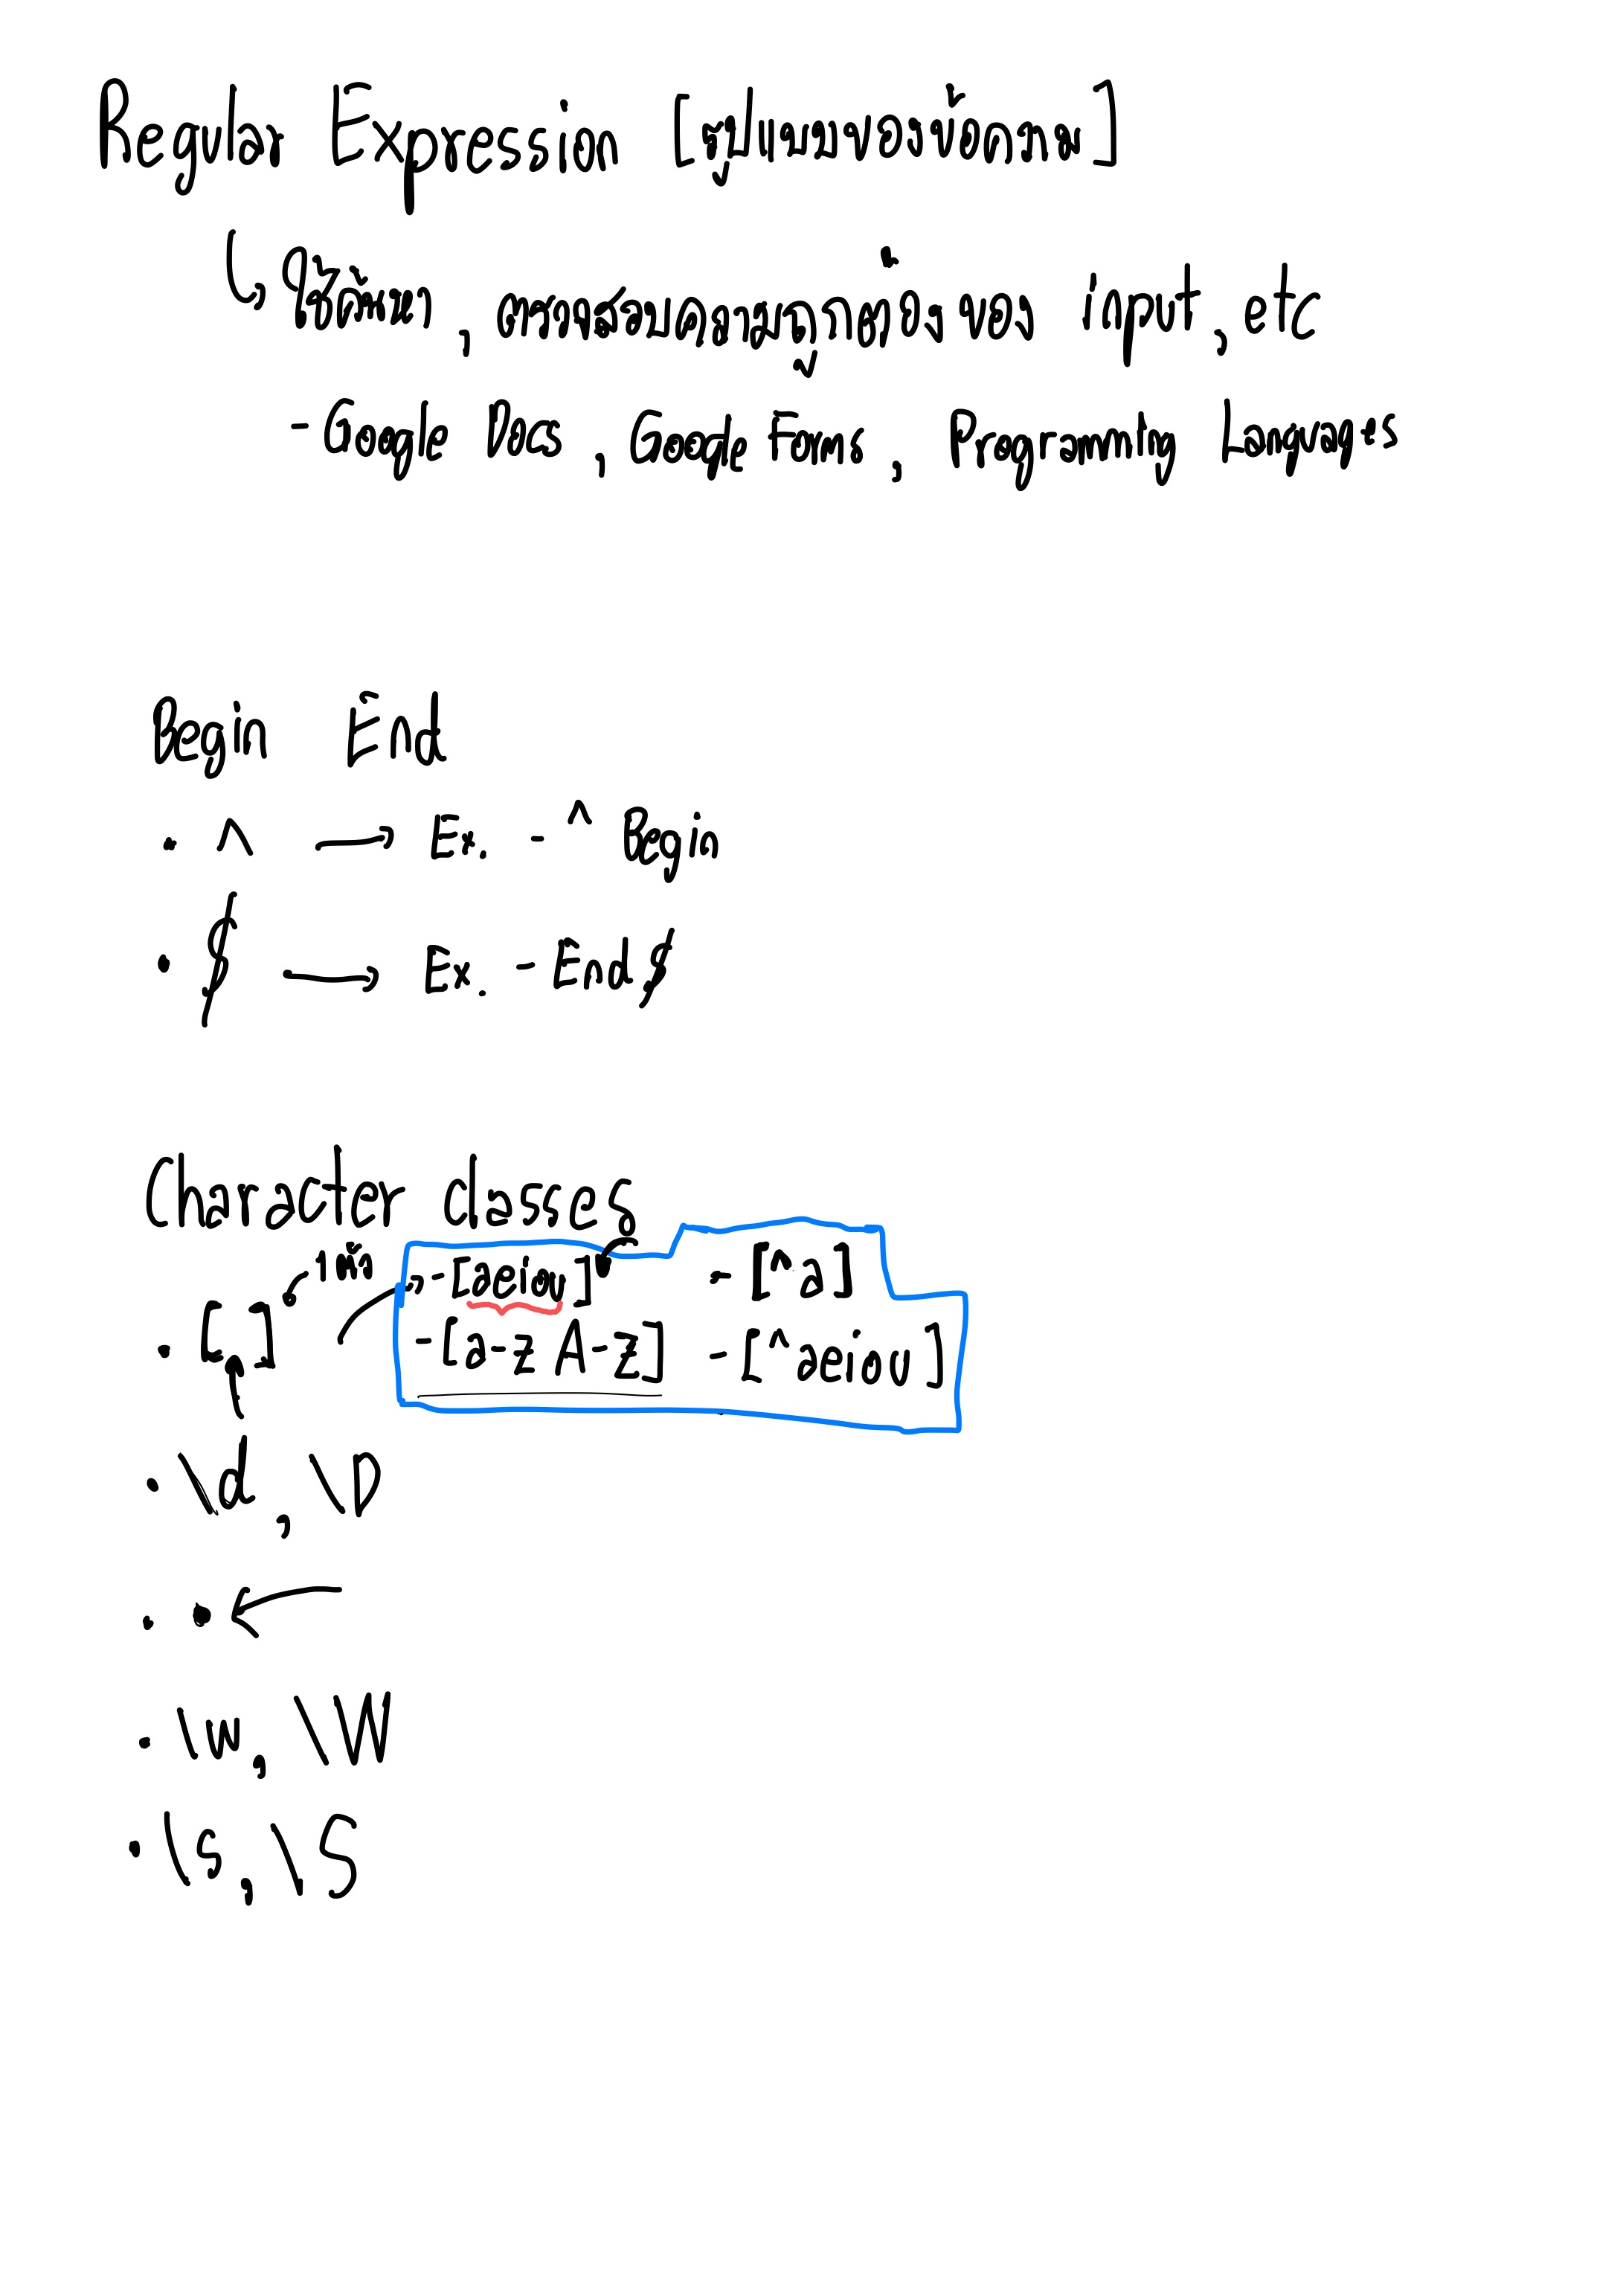 Regular Expression [รูปแบบของข้อความ]
ใช้ค้นหา , ตรวจสอบความถูกต้องของ input , etc
- Google Docs , Google Forms , Programming Languages
Begin End
• ^ → Ex. - ^ Begin
• $ → Ex. - End$
Character classes
1 ตัว
- [aeiou] - [^a]
• [ ]
- [a-z A-Z] - [^aeiou]
• \d , \D
• .
• \w , \W
• \s , \S